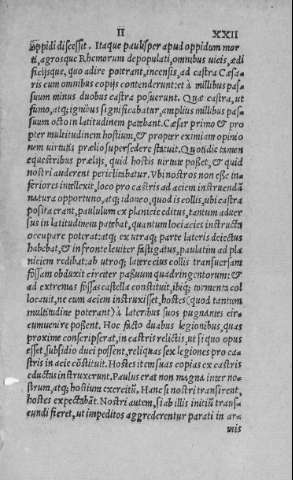 II XXII
oppidi discessit. Itaque paulisper apud oppidum mor
ti, agrosque Rhemorum depopulati, omnibus uicis, ædi
ficijsque, quo adire poterant, incensis, ad castra Cæsa
ris cum omnibus copijs contenderunt: et à millibus pas
suum minus duobus castra posuerunt. Quæ castra, ut
fumo, atque ignibus significabatur, amplius millibus pas
suum octo in latitudinem patebant. Cæsar primo & pro
pter multitudinem hostium, & propter eximiam opinio
nem uirtutis prælio supersedere statuit. Quotidie tamen
equestribus prælijs, quid hostis uirtute posset, & quid
nostri auderent periclitabatur. Vbi nostros non esse in
feriores intellexit, loco pro castris ad aciem instruendã
natura opportuno, atque idoneo, quod is collis, ubi castra
posita erant, paululum ex planicie editus, tantum aduer
sus in latitudinem patebat, quantum loci acies instructa
occupare poterat: atque ex utraque parte lateris deiectus
habebat, & in fronte leuiter fastigatus, paulatim ad pla
niciem redibat: ab utroque latere eius collis transuersam
fossam obduxit circiter passuum quadringentorum: &
ad extremas fossas castella constituit, ibique tormenta col
locauit, ne cum aciem instruxisset, hostes (quod tantum
multitudine poterant) à lateribus suos pugnantes cir-
cumuenire possent. Hoc facto duabus legionibus, quas
proxime conscripserat, in castris relictis, ut si quo opus
esset, subsidio duci possent, reliquas sex legiones pro ca
stris in acie cõstituit. Hostes item suas copias ex castris
eductas instruxerunt. Palus erat non magna inter no-
strum, atque hostium exercitũ. Hanc si nostri transirent,
hostes expectabãt. Nostri autem, si ab illis initiũ transe
eundi fieret, ut impeditos aggrederentur parati in ar-
mis